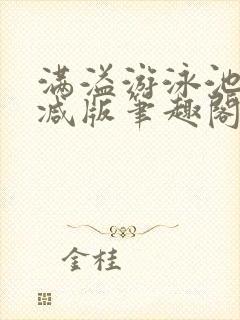 满溢游泳池
减版笔趣阁
金桂